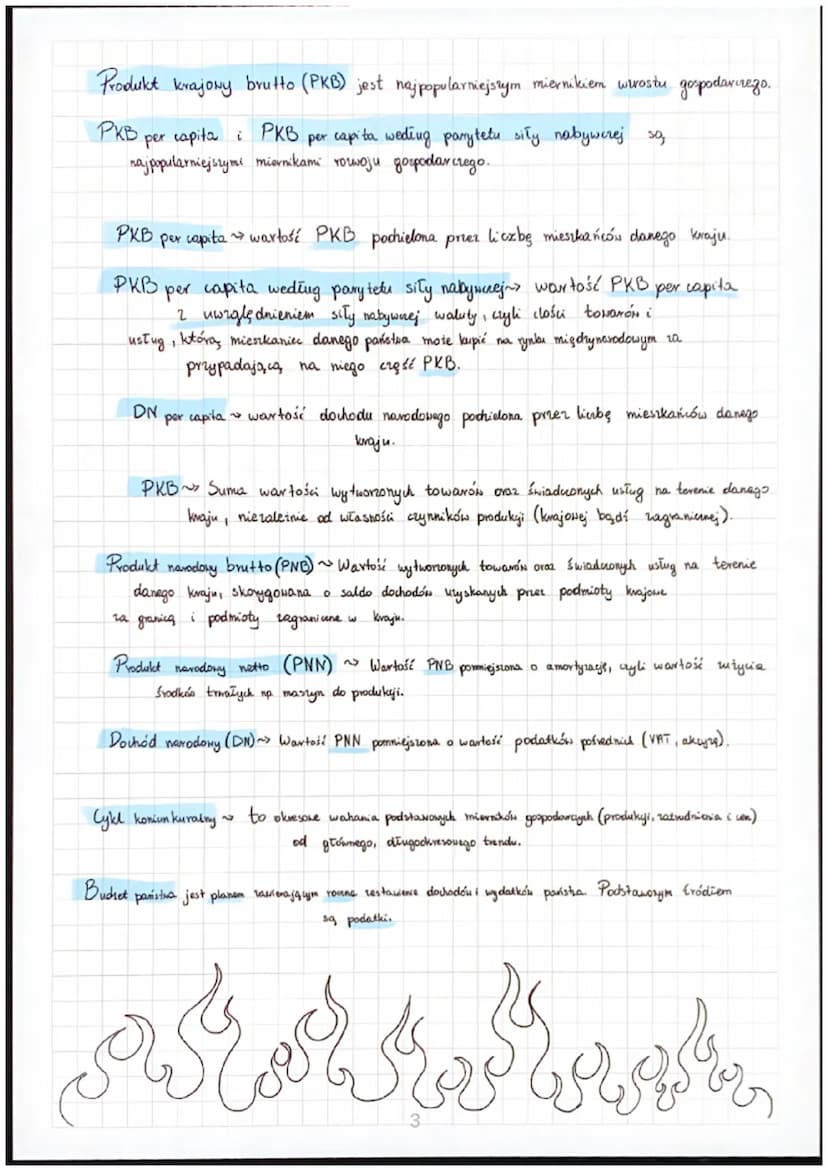 Produkt krajowy brutto (PKB) jest najpopularniejszym miernikiem wzrostu gospodarczego.
PKB per capita i PKB per capita według parytetu siły nabywczej są
najpopularniejszymi miernikami rozwoju gospodarczego.
PKB per capita ~> wartość PKB podzielona przez liczbę mieszkańców danego kraju.
PKB per capita według parytetu siły nabywczej ~> wartość PKB per capita
z uwzględnieniem siły nabywczej waluty, czyli ilości towarów i
usług, którą mieszkaniec danego państwa może kupić na rynku międzynarodowym za
przypadającą na niego część PKB.
DN per capita ~> wartość dochodu narodowego podzielona przez liczbę mieszkańców danego
kraju.
PKB ~> Suma wartości wytworzonych towarów oraz świadczonych usług na terenie danego
kraju, niezależnie od własności czynników produkcji (krajowej bądź zagranicznej).
Produkt narodowy brutto (PNB) ~ Wartość wytworzonych towarów oraz świadczonych usług na terenie
danego kraju, skorygowana o saldo dochodów uzyskanych przez podmioty krajowe
za granicą i podmioty zagraniczne w kraju.
Produkt narodowy netto (PNN) ~> Wartość PNB pomniejszona o amortyzację, czyli wartość zużycia
środków trwałych np. maszyn do produkcji.
Dochód narodowy (DN) ~> Wartość PNN pomniejszona o wartość podatków pośrednich (VAT, akcyza).
Cykl koniunkuralny ~> to okresowe wahania podstawowych mierników gospodarczych (produkcji, zatrudnienia i cen)
od głównego, długookresowego trendu.
Budżet państwa jest planem zawierającym roczne zestawienie dochodów i wydatków państwa. Podstawowym źródłem
są podatki.
3